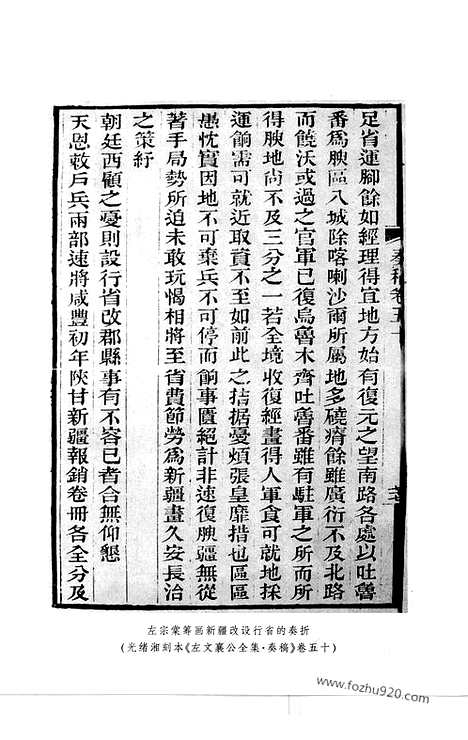 足省運腳餘如經理得宜地方始有復元之望南路各處以吐魯
番為腴區八城除喀喇沙爾所屬地多磽瘠餘雖廣衍不及北路
而饒沃或過之官軍已復烏魯木齊吐魯番雖有駐軍之所而所
得腴地尚不及三分之一若全境收復經畫得人軍食可就地採
運餉需可就近取資不至如前此之拮据憂煩張皇靡措也區區
愚忱實因地不可棄兵不可停而餉事匱絕計非速復腴疆無從
著手局勢所迫未敢玩愒相將至省費節勞為新疆畫久安長治
之策紓
朝廷西顧之憂則設行省改郡縣事有不容已者合無仰懇
天恩敕戶兵兩部速將咸豐初年陝甘新疆報銷卷冊各全分及
奏稿卷五十
左宗棠筹画新疆改设行省的奏折
(光绪湘刻本《左文襄公全集·奏稿》卷五十)
www.fozhu920.com